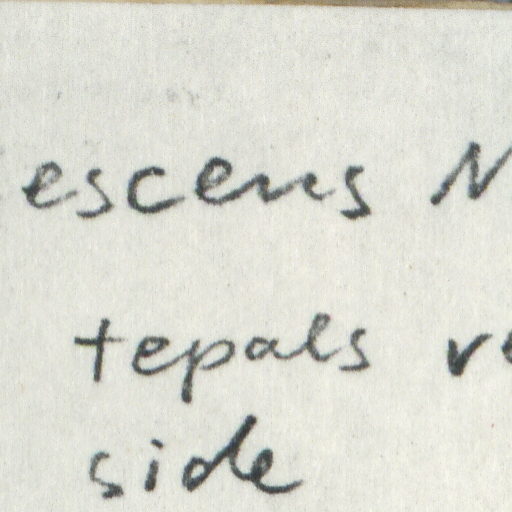 escens N
tepals re
side